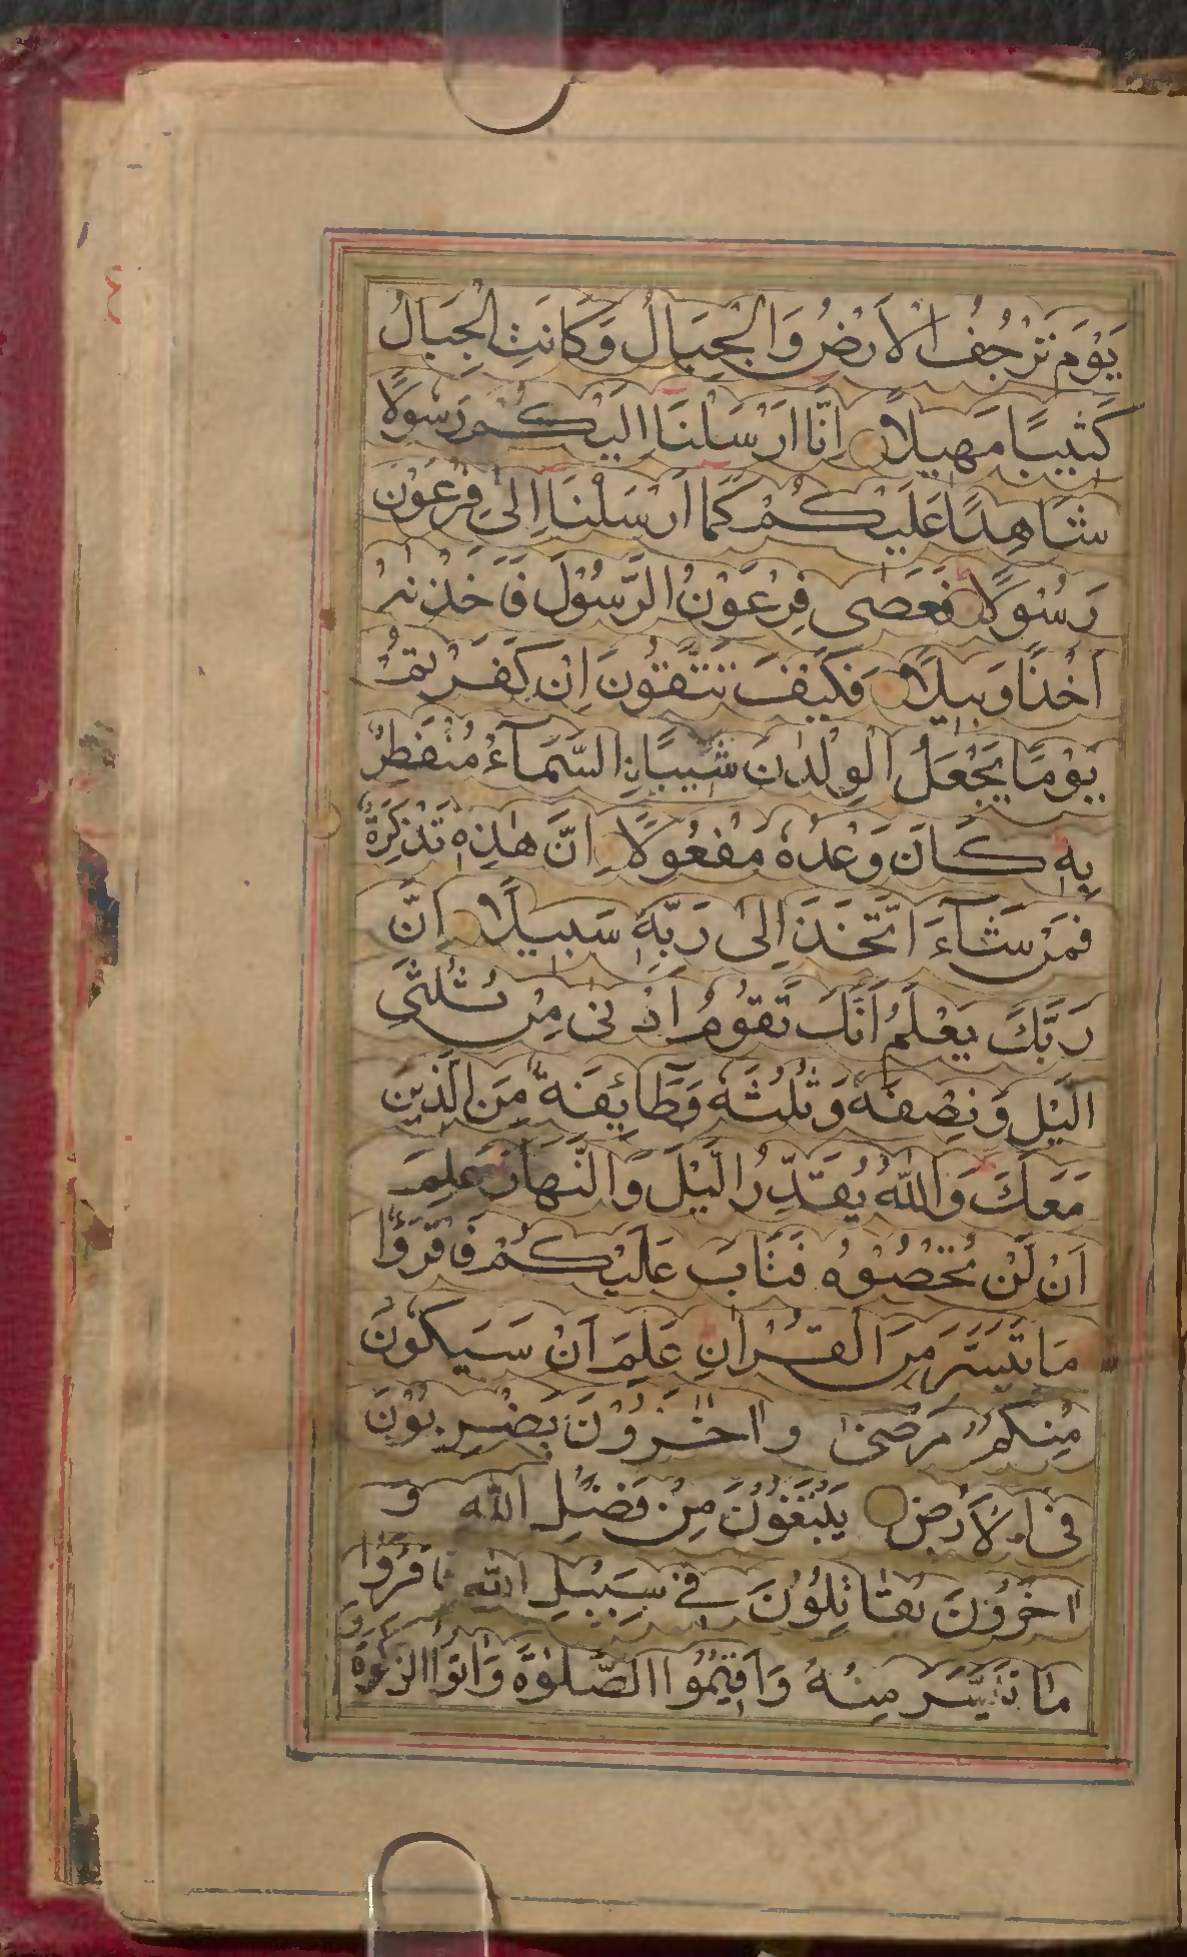 يَوْمَ تَرْجُفُ الْأَرْضُ وَالْجِبَالُ وَكَانَتِ الْجِبَالُ
كَثِيبًا مَهِيلًا اِنَّا اَرْسَلْنَا اِلَيْكُمْ رَسُولًا
شَاهِدًا عَلَيْكُمْ كَمَا اَرْسَلْنَا اِلٰى فِرْعَوْنَ
رَسُولًا فَعَصٰى فِرْعَوْنُ الرَّسُوْلَ فَاَخَذْنٰهُ
اَخْذًا وَبِيلًا فَكَيْفَ تَتَّقُونَ اِنْ كَفَرْتُمْ
يَوْمًا يَجْعَلُ الْوِلْدٰنَ شِيبًا نِ السَّمَآءُ مُنْفَطِرٌ
بِهٖ كَانَ وَعْدُهٗ مَفْعُولًا اِنَّ هٰذِهٖ تَذْكِرَةٌ
فَمَنْ شَآءَ اتَّخَذَ اِلٰى رَبِّهٖ سَبِيلًا اِنَّ
رَبَّكَ يَعْلَمُ اَنَّكَ تَقُوْمُ اَدْنٰى مِنْ ثُلُثَيِ
الَّيْلِ وَنِصْفَهٗ وَثُلُثَهٗ وَطَآئِفَةٌ مِنَ الَّذِينَ
مَعَكَ وَاللّٰهُ يُقَدِّرُ الَّيْلَ وَالنَّهَارَ عَلِمَ
اَنْ لَنْ تُحْصُوْهُ فَتَابَ عَلَيْكُمْ فَاقْرَؤُا
مَا تَيَسَّرَ مِنَ الْقُرْاٰنِ عَلِمَ اَنْ سَيَكُوْنُ
مِنْكُمْ مَرْضٰى وَاٰخَرُوْنَ يَضْرِبُوْنَ
فِى الْاَرْضِ يَبْتَغُوْنَ مِنْ فَضْلِ اللّٰهِ وَ
اٰخَرُوْنَ يُقَاتِلُوْنَ فِى سَبِيْلِ اللّٰهِ فَاقْرَؤُا
مَا تَيَسَّرَ مِنْهُ وَاَقِيْمُوا الصَّلٰوةَ وَاٰتُوا الزَّكٰوةَ